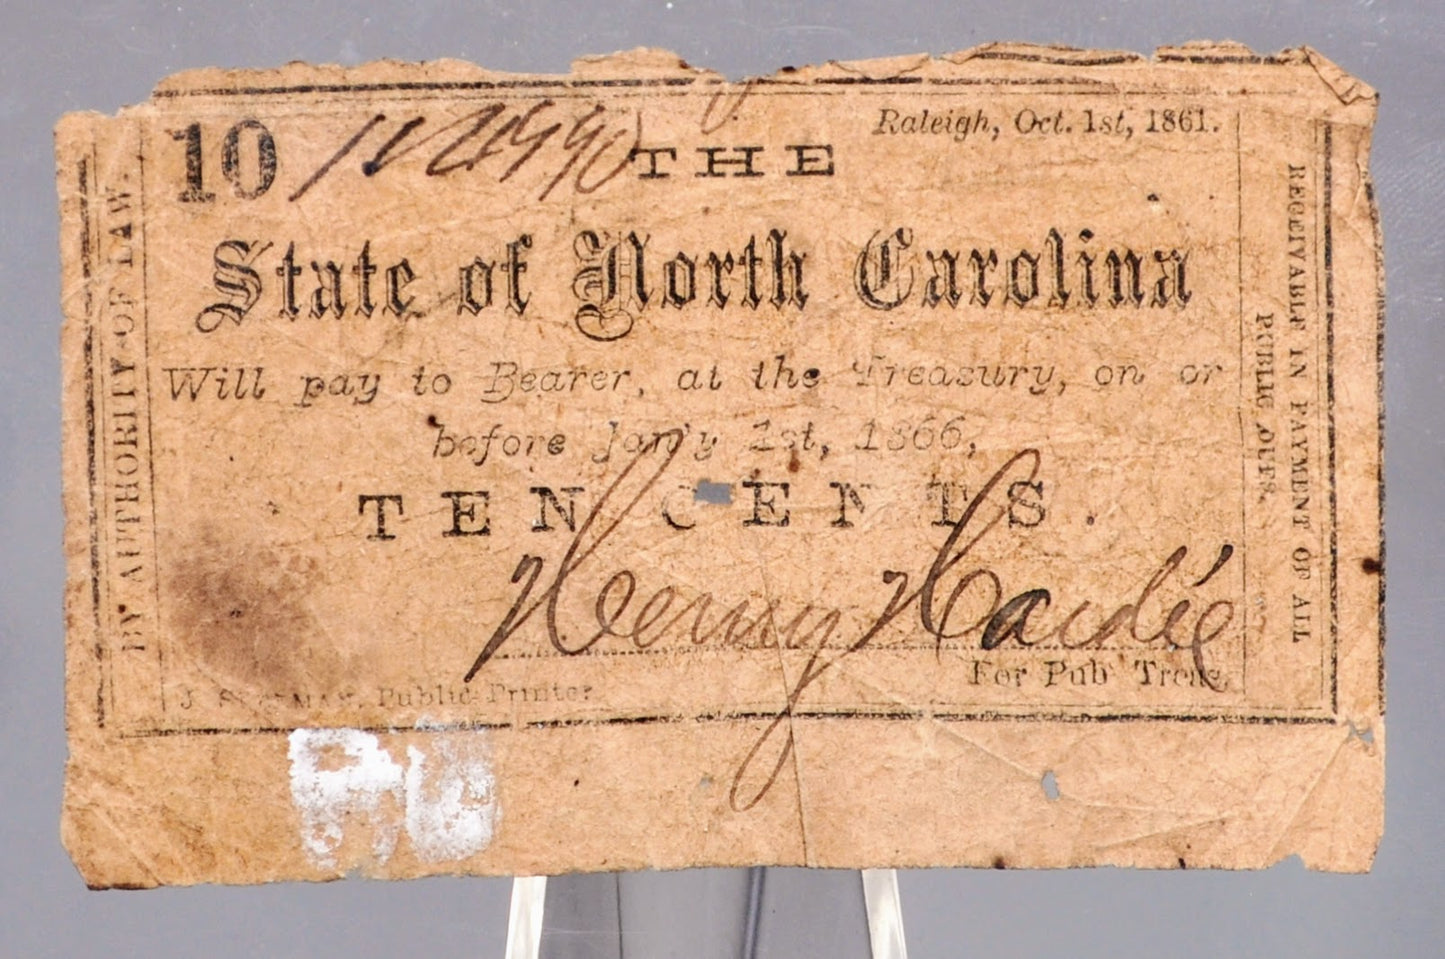 BY AUTHORITY OF LAW.
10
Raleigh, Oct. 1st, 1861.
THE
State of North Carolina
Will pay to Bearer, at the Treasury, on or
before Jan'y 1st, 1866,
TEN CENTS.
Henry Hardie
For Pub Treas.
J. Public Printer
RECEIVABLE IN PAYMENT OF ALL
PUBLIC DUES.